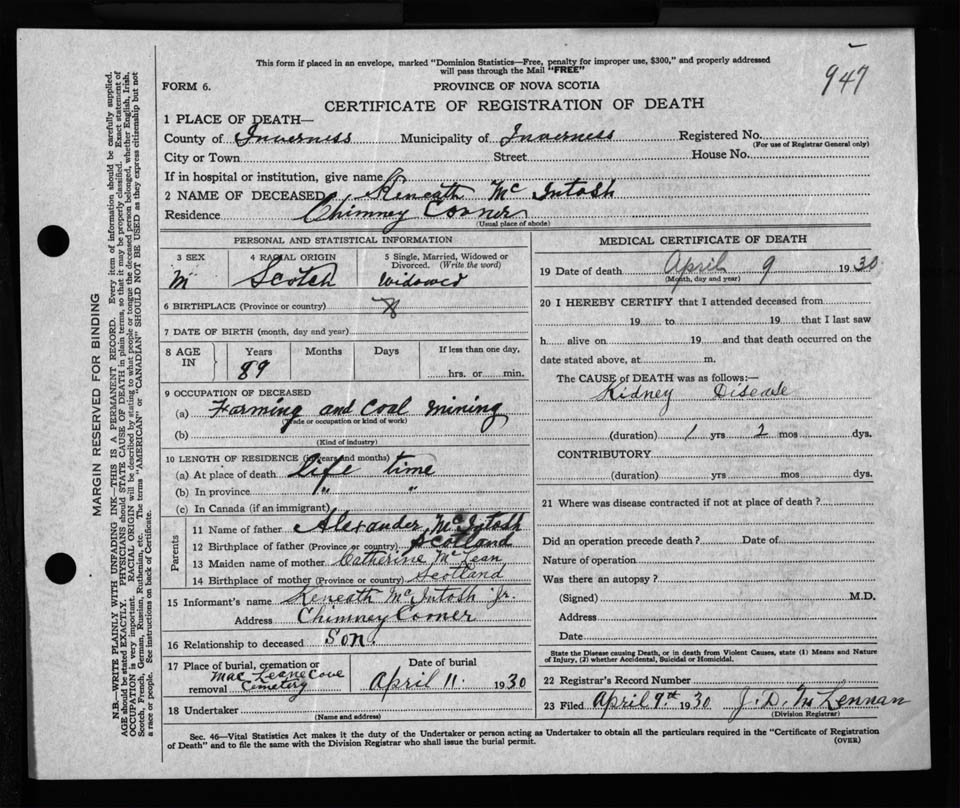 947
This form if placed in an envelope, marked "Dominion Statistics—Free, penalty for improper use, $300," and properly addressed
will pass through the Mail "FREE"
FORM 6.
PROVINCE OF NOVA SCOTIA
CERTIFICATE OF REGISTRATION OF DEATH
1 PLACE OF DEATH—
County of Inverness Municipality of Inverness Registered No.
(For use of Registrar General only)
City or Town Street House No.
If in hospital or institution, give name
2 NAME OF DECEASED Kineath Mc Intosh
Residence Chimney Corner
(Usual place of abode)
MARGIN RESERVED FOR BINDING
N.B.—WRITE PLAINLY WITH UNFADING INK—THIS IS A PERMANENT RECORD. Every item of information should be carefully supplied.
AGE should be stated EXACTLY. PHYSICIANS should STATE CAUSE OF DEATH in plain terms, so that it may be properly classified. Exact statement of
OCCUPATION is very important. RACIAL ORIGIN will be described by stating to what people or tongue the deceased person belonged, whether English, Irish,
Scotch, French, German, Russian, Ruthenian, etc. The terms "AMERICAN" or "CANADIAN" SHOULD NOT BE USED as they express citizenship but not
a race or people. See instructions on back of Certificate.
PERSONAL AND STATISTICAL INFORMATION
3 SEX
M
4 RACIAL ORIGIN
Scotch
5 Single, Married, Widowed or
Divorced. (Write the word)
Widowed
6 BIRTHPLACE (Province or country)
7 DATE OF BIRTH (month, day and year)
8 AGE
IN
Years
89
Months
Days
If less than one day,
hrs. or min.
9 OCCUPATION OF DECEASED
(a) Farming and Coal Mining
(Trade or occupation or kind of work)
(b)
(Kind of industry)
10 LENGTH OF RESIDENCE (in years and months)
(a) At place of death life time
(b) In province " "
(c) In Canada (if an immigrant)
Parents
11 Name of father Alexander McIntosh
12 Birthplace of father (Province or country) Scotland
13 Maiden name of mother Catherine McLean
14 Birthplace of mother (Province or country) Scotland
15 Informant's name Keneath McIntosh Jr.
Address Chimney Corner
16 Relationship to deceased Son
17 Place of burial, cremation or
removal Mac Leane Cove
Cemetery
Date of burial
April 11. 1930
18 Undertaker
(Name and address)
MEDICAL CERTIFICATE OF DEATH
19 Date of death April 9 1930
(Month, day and year)
20 I HEREBY CERTIFY that I attended deceased from
19 to 19 that I last saw
h alive on 19 and that death occurred on the
date stated above, at m.
The CAUSE of DEATH was as follows:—
Kidney Disease
(duration) 1 yrs 2 mos dys.
CONTRIBUTORY
(duration) yrs. mos. dys.
21 Where was disease contracted if not at place of death?
Did an operation precede death? Date of
Nature of operation
Was there an autopsy?
(Signed) M.D.
Address
Date
State the Disease causing Death, or in death from Violent Causes, state (1) Means and Nature
of Injury, (2) whether Accidental, Suicidal or Homicidal.
22 Registrar's Record Number
23 Filed April 9th 1930 J. D. McLennan
(Division Registrar)
Sec. 46—Vital Statistics Act makes it the duty of the Undertaker or person acting as Undertaker to obtain all the particulars required in the "Certificate of Registration
of Death" and to file the same with the Division Registrar who shall issue the burial permit.
(OVER)